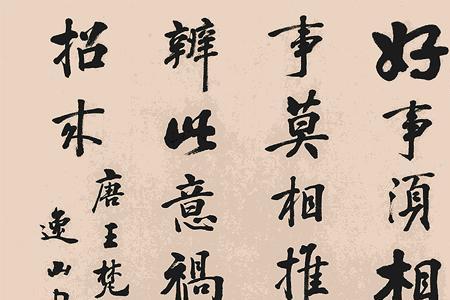 好事須相
事莫相推
辨此意禍
招来
唐王梵
逸山